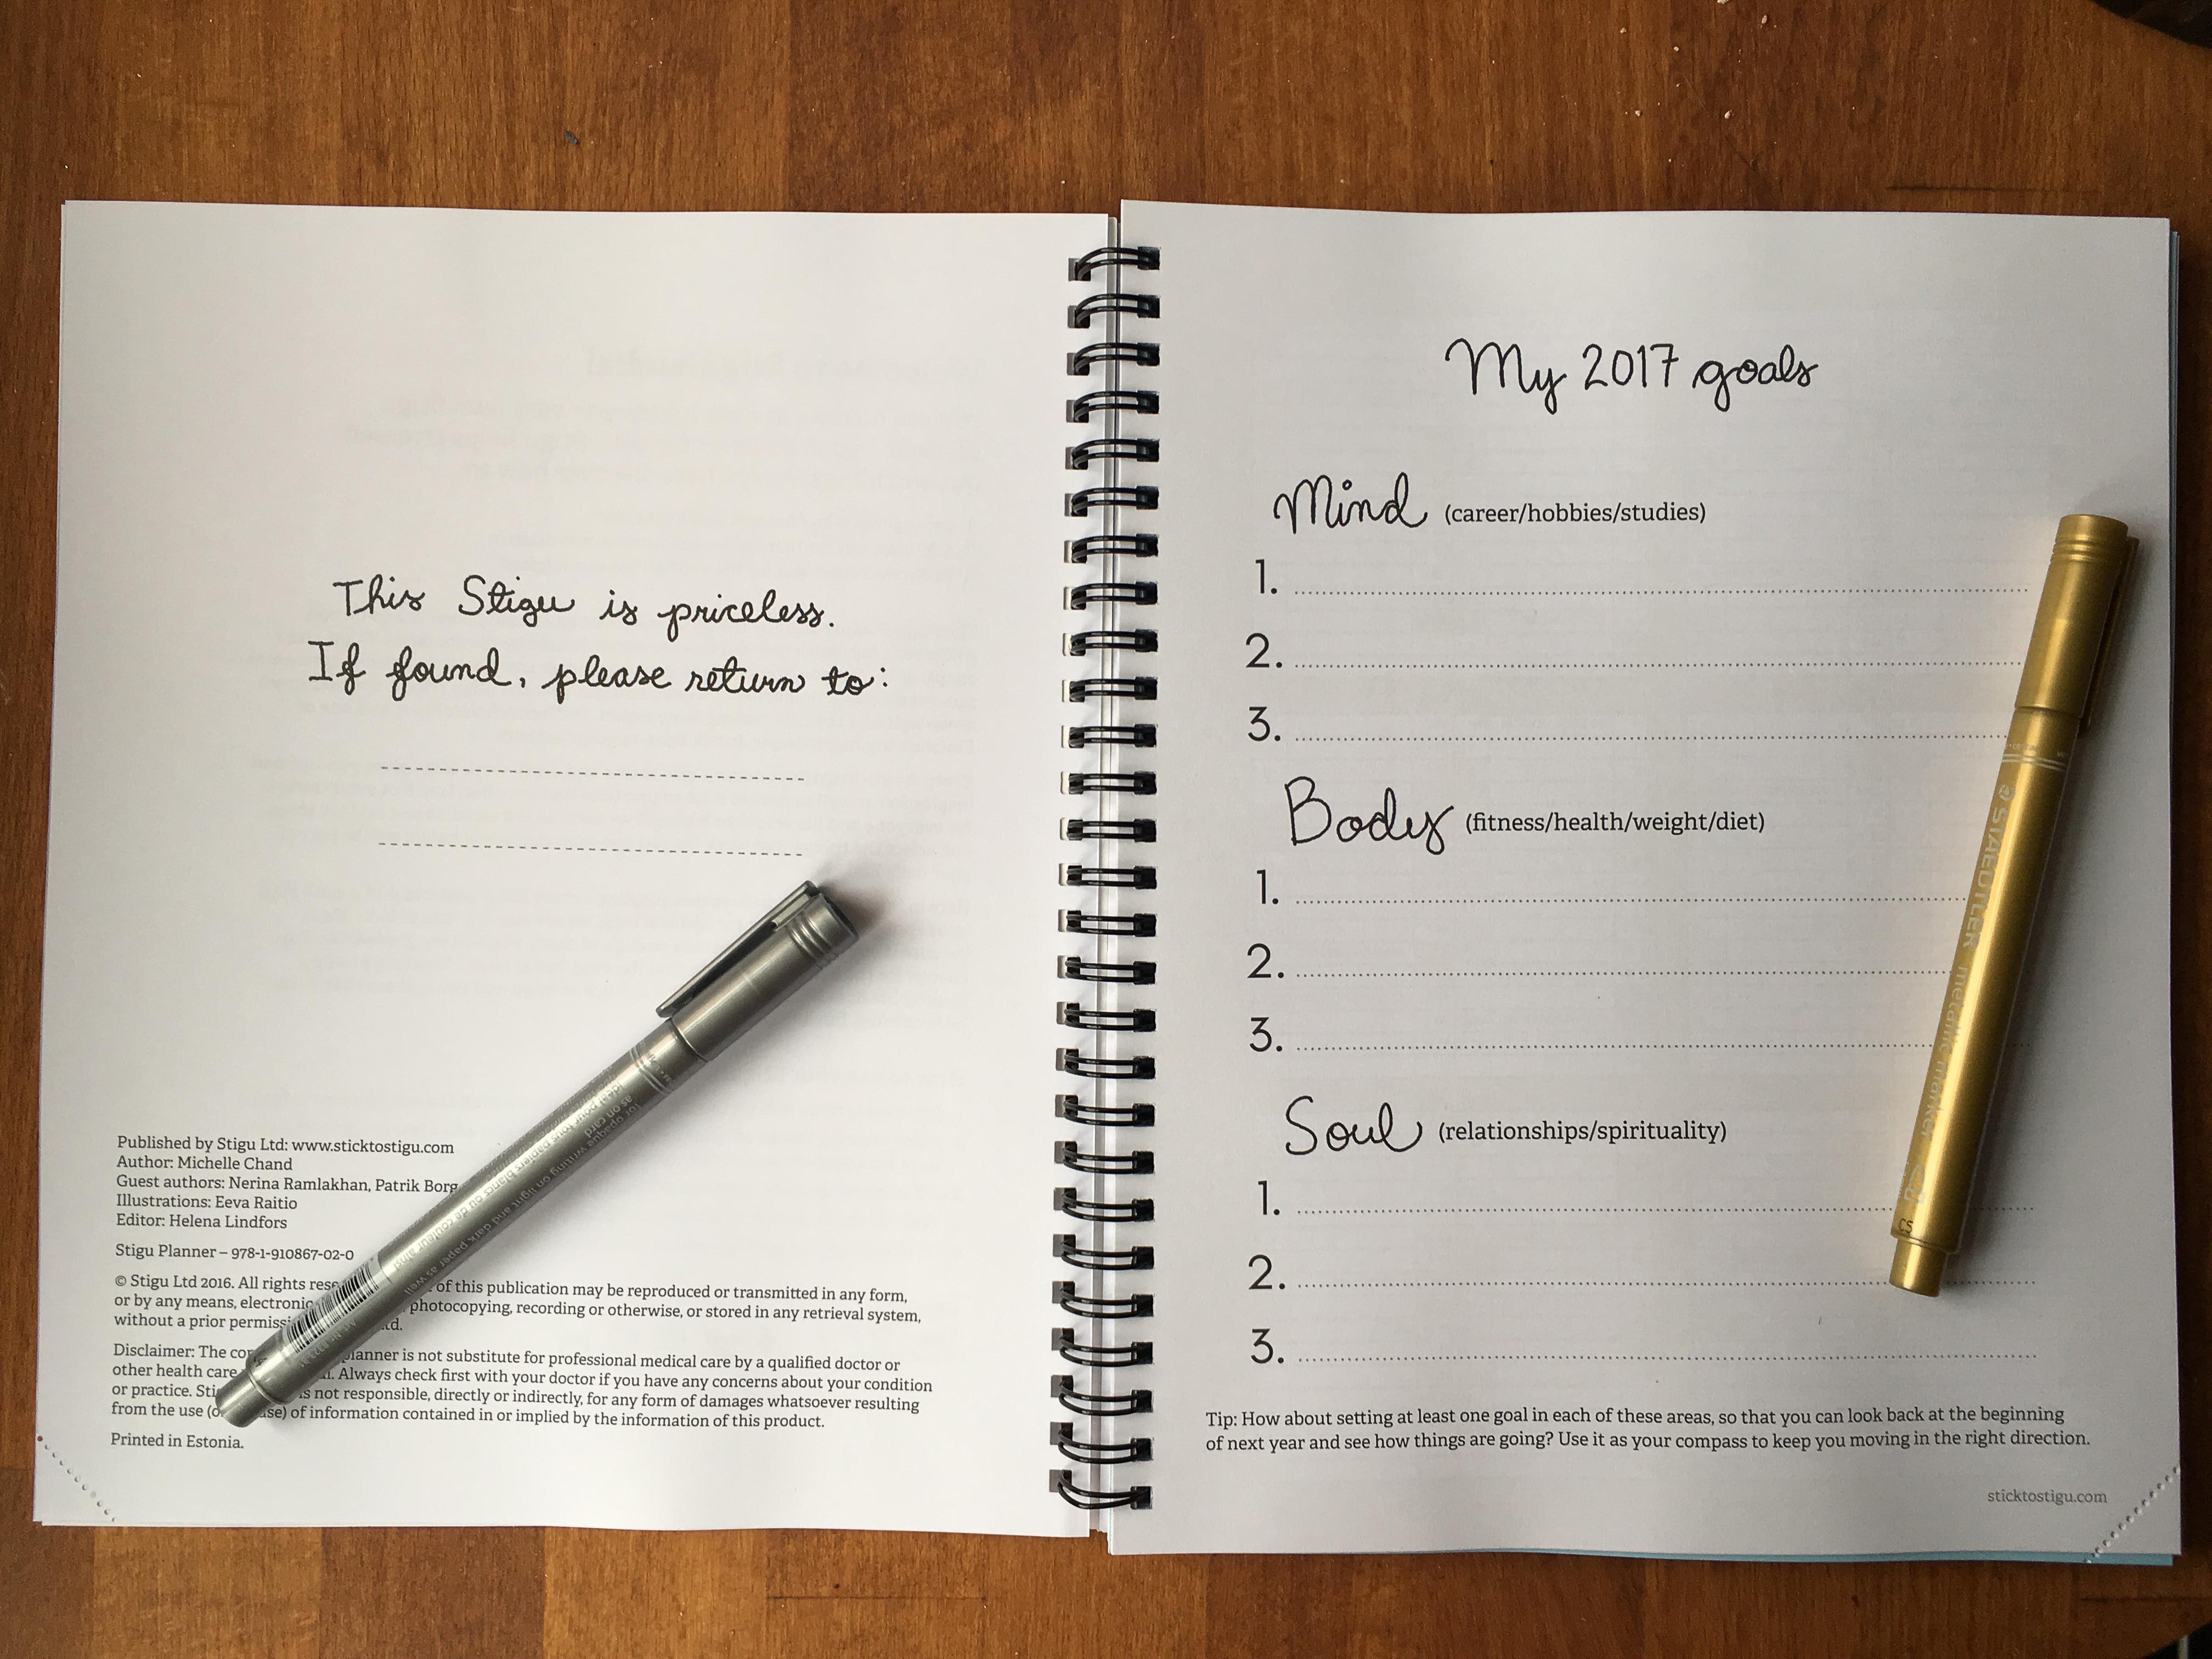 This Stigu is priceless.
If found, please return to:
Published by Stigu Ltd: www.sticktostigu.com
Author: Michelle Chand
Guest authors: Nerina Ramlakhan, Patrik Borg
Illustrations: Eeva Raitio
Editor: Helena Lindfors
Stigu Planner – 978-1-910867-02-0
© Stigu Ltd 2016. All rights of this publication may be reproduced or transmitted in any form,
or by any means, electronic photocopying, recording or otherwise, or stored in any retrieval system,
without a prior
Disclaimer: The planner is not substitute for professional medical care by a qualified doctor or
other health care Always check first with your doctor if you have any concerns about your condition
or practice. is not responsible, directly or indirectly, for any form of damages whatsoever resulting
from the use of information contained in or implied by the information of this product.
Printed in Estonia.
for opaque writing on light and dark paper as well
as on card
idéal pour tous papiers blancs ou de couleur ainsi
My 2017 goals
Mind (career/hobbies/studies)
1.
2.
3.
Body (fitness/health/weight/diet)
1.
2.
3.
Soul (relationships/spirituality)
1.
2.
3.
Tip: How about setting at least one goal in each of these areas, so that you can look back at the beginning
of next year and see how things are going? Use it as your compass to keep you moving in the right direction.
sticktostigu.com
STAEDTLER metallic marker